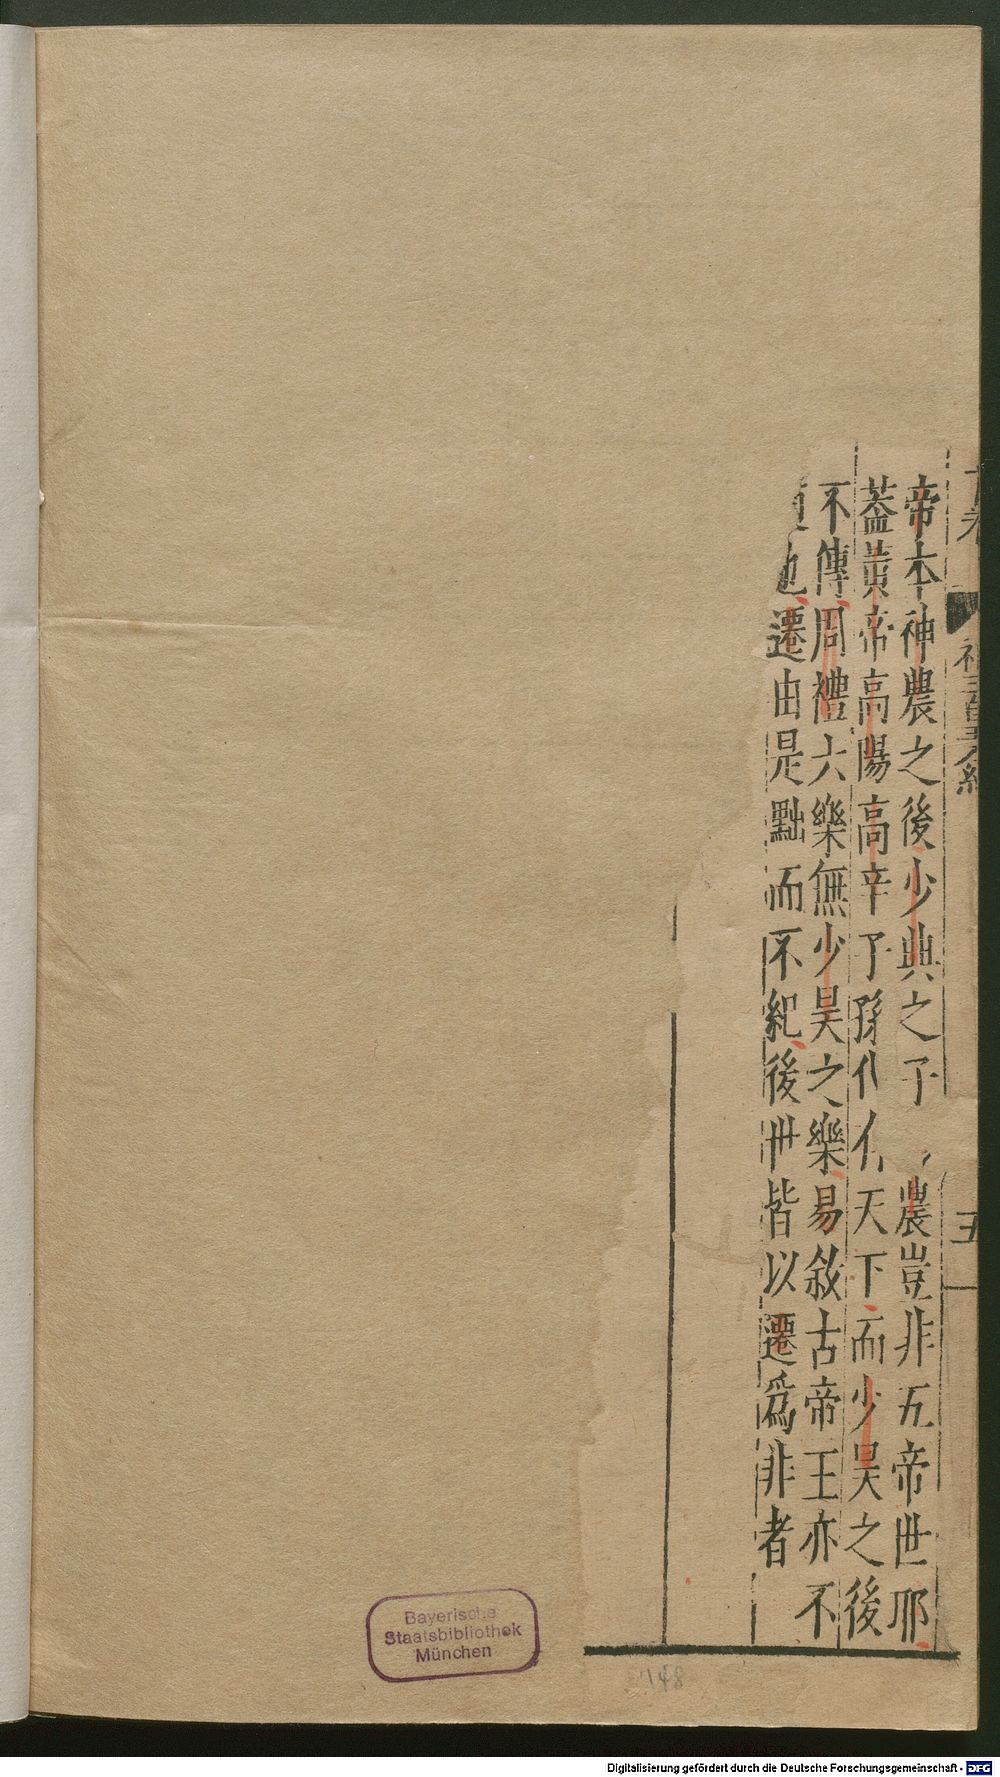 帝本神農之後少典之子 農豈非五帝世耶
葢黃帝高陽高辛子孫代 天下而少昊之後
不傳周禮六樂無少昊之樂易敘古帝王亦不
也遷由是黜而不紀後世皆以遷爲非者
五
Bayerische
Staatsbibliothek
München
148
Digitalisierung gefördert durch die Deutsche Forschungsgemeinschaft - DFG